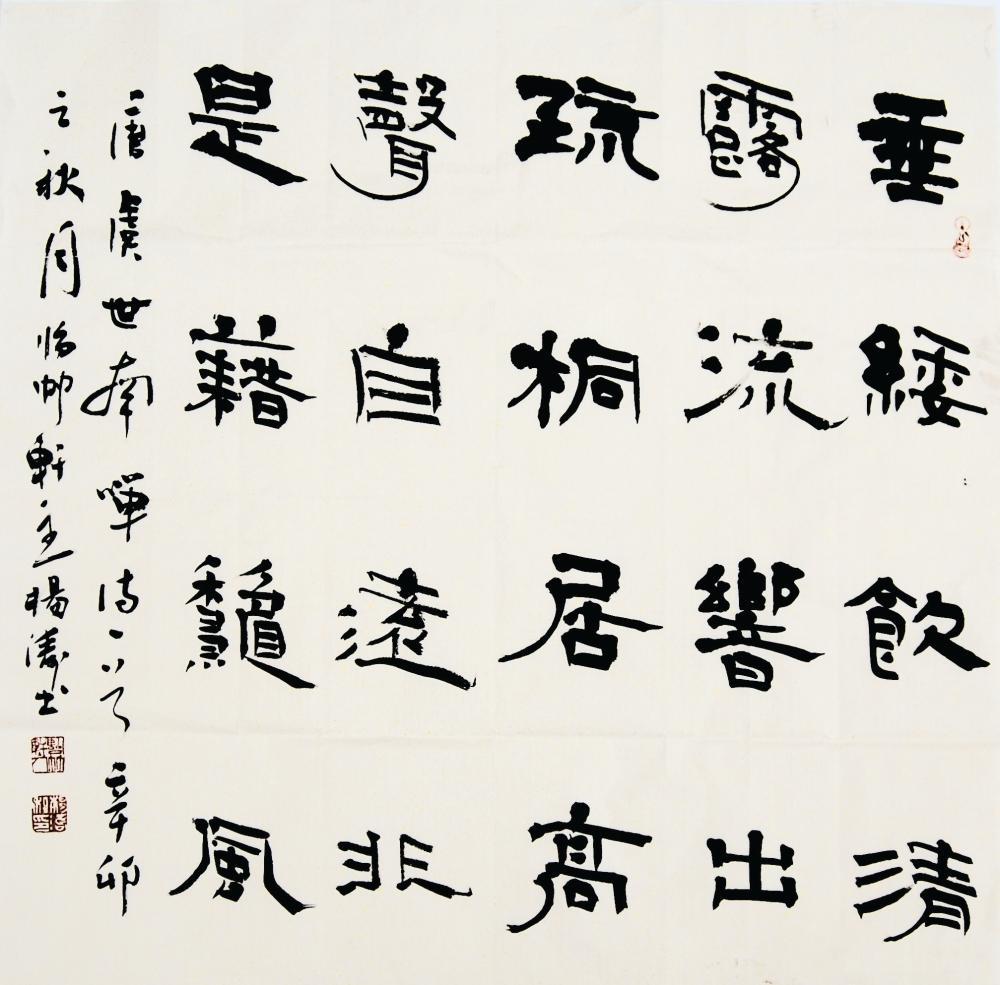 垂緌飲清
露流響出
疏桐居高
聲自遠非
是藉龝風
唐虞世南蟬詩一首辛卯
之秋月軒主楊濤书